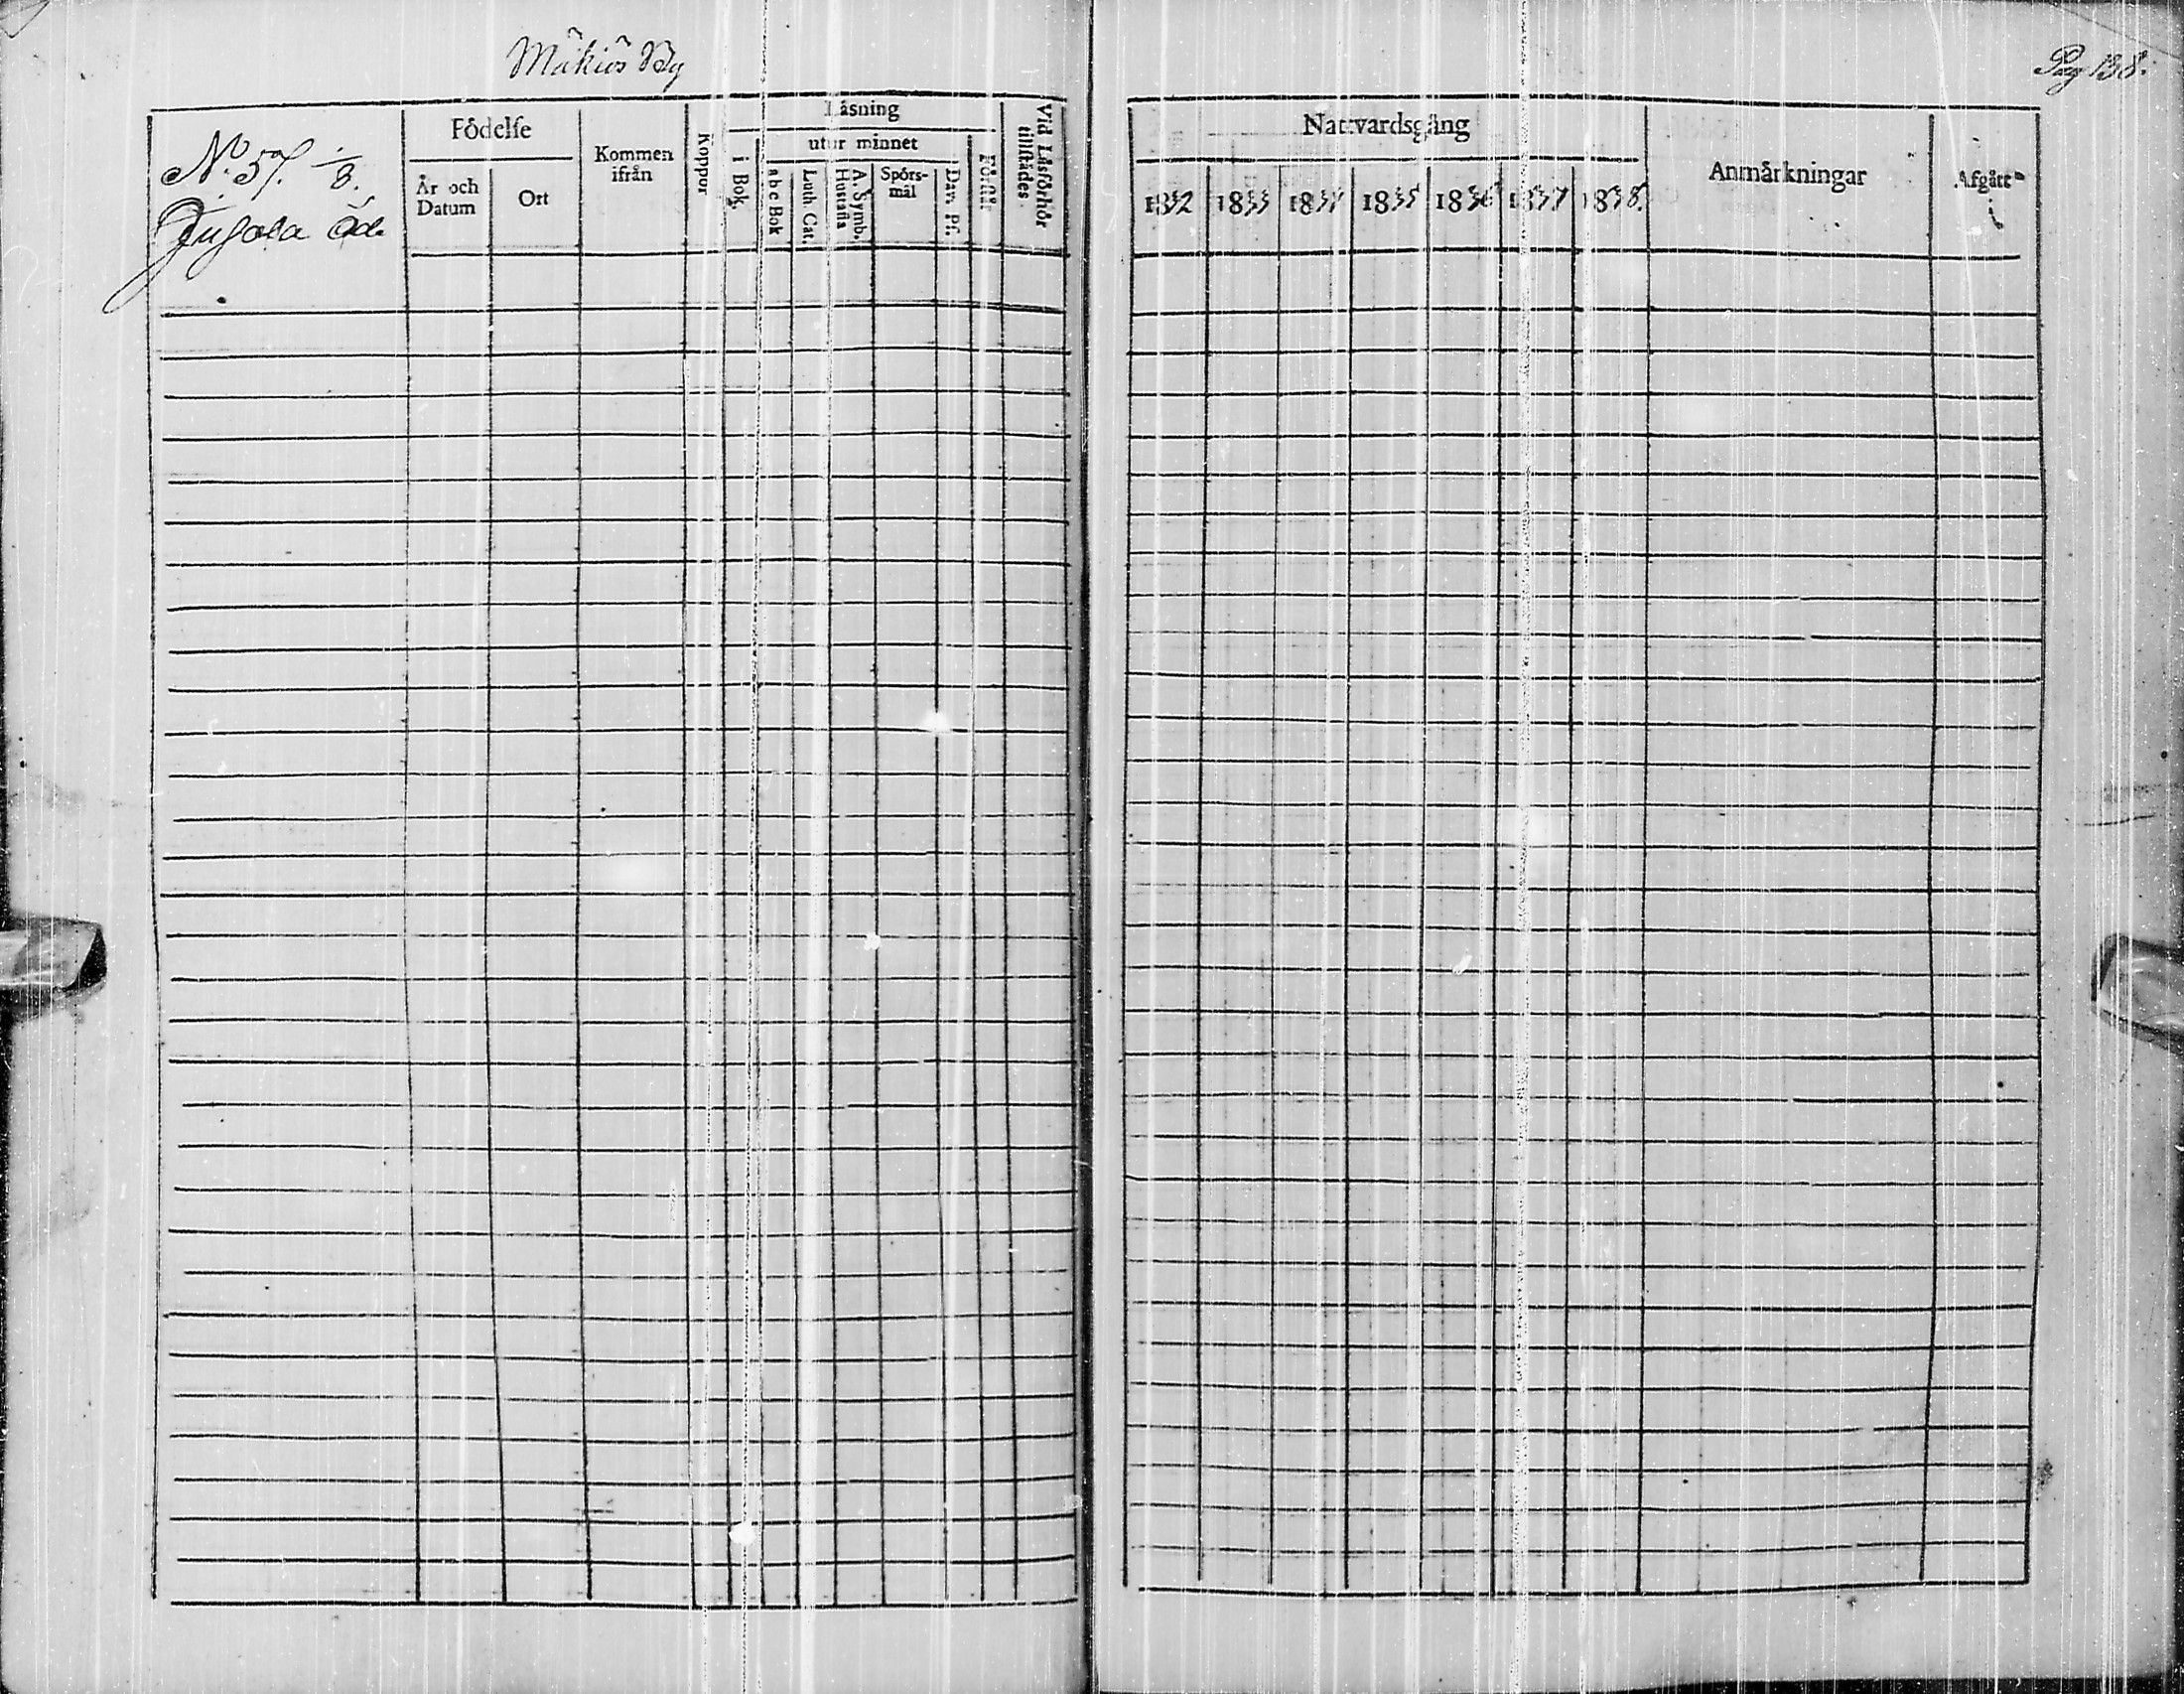 Mäkiös By
Pag 138.
N:o 57. 1/8.
Jugala Öde
Födelse
År och Datum
Ort
Kommen ifrån
Koppor
Läsning
i Bok
utur minnet
a b c Bok
Luth. Cat.
A. Symb. Hustafla
Spörs-mål
Dav. Ps.
Förstår
Vid Läsförhör tillstädes
Nattvardsgång
1832 1833 1834 1835 1836 1837 1838.
Anmärkningar
Afgått